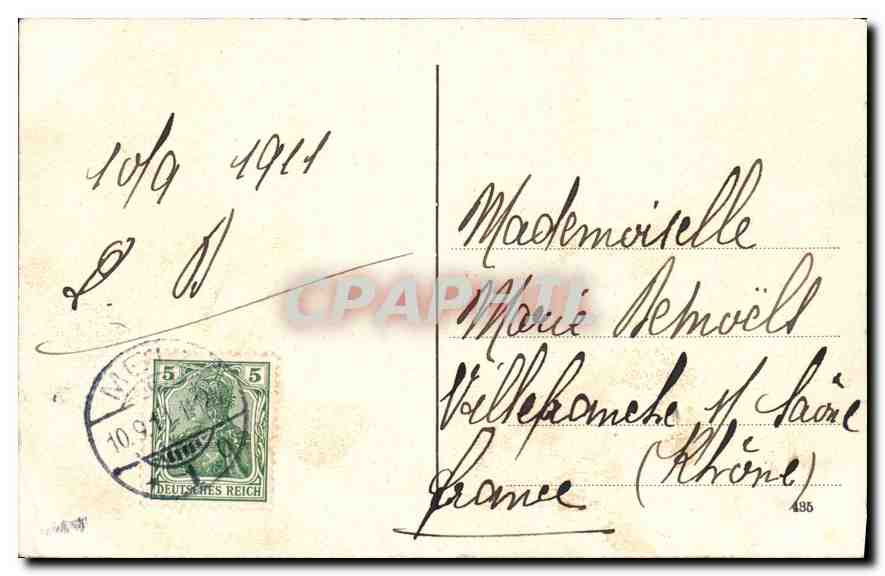 10/9 1911
L. B
Mademoiselle
Marie
Villefranche s/ Saône
(Rhône)
france
485
CPAPHIL
5 5
DEUTSCHES REICH
10.9.11